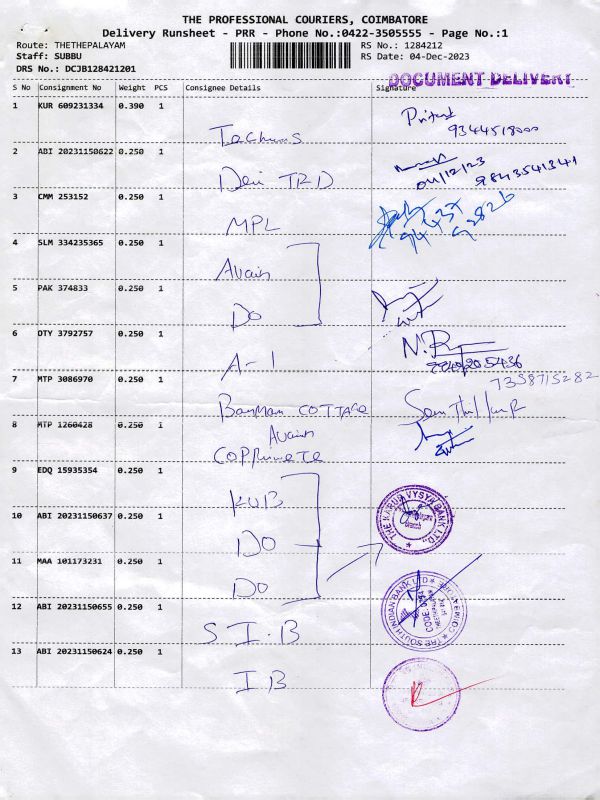 THE PROFESSIONAL COURIERS, COIMBATORE
Delivery Runsheet - PRR - Phone No.:0422-3505555 - Page No.:1
Route: THETHEPALAYAM
RS No.: 1284212
Staff: SUBBU
RS Date: 04-Dec-2023
DRS No.: DCJB128421201
DOCUMENT DELIVERY
S No Consignment No Weight PCS Consignee Details Signature
1 KUR 609231334 0.390 1
9344518000
2 ABI 20231150622 0.250 1
Devi TRD 04/12/23 9843541341
3 CMM 253152 0.250 1
MPL
4 SLM 334235365 0.250 1
5 PAK 374833 0.250 1
Do
6 DTY 3792757 0.250 1
A-1 N.R
7 MTP 3086970 0.250 1
7358715282
COTTAGE
8 MTP 1260428 0.250 1
9 EDQ 15935354 0.250 1
KUB
10 ABI 20231150637 0.250 1
THE KARUR VYSYA BANK LTD.,
DO
11 MAA 101173231 0.250 1
Do
12 ABI 20231150655 0.250 1
THE SOUTH INDIAN BANK LTD
CODE
S I.B
13 ABI 20231150624 0.250 1
I B